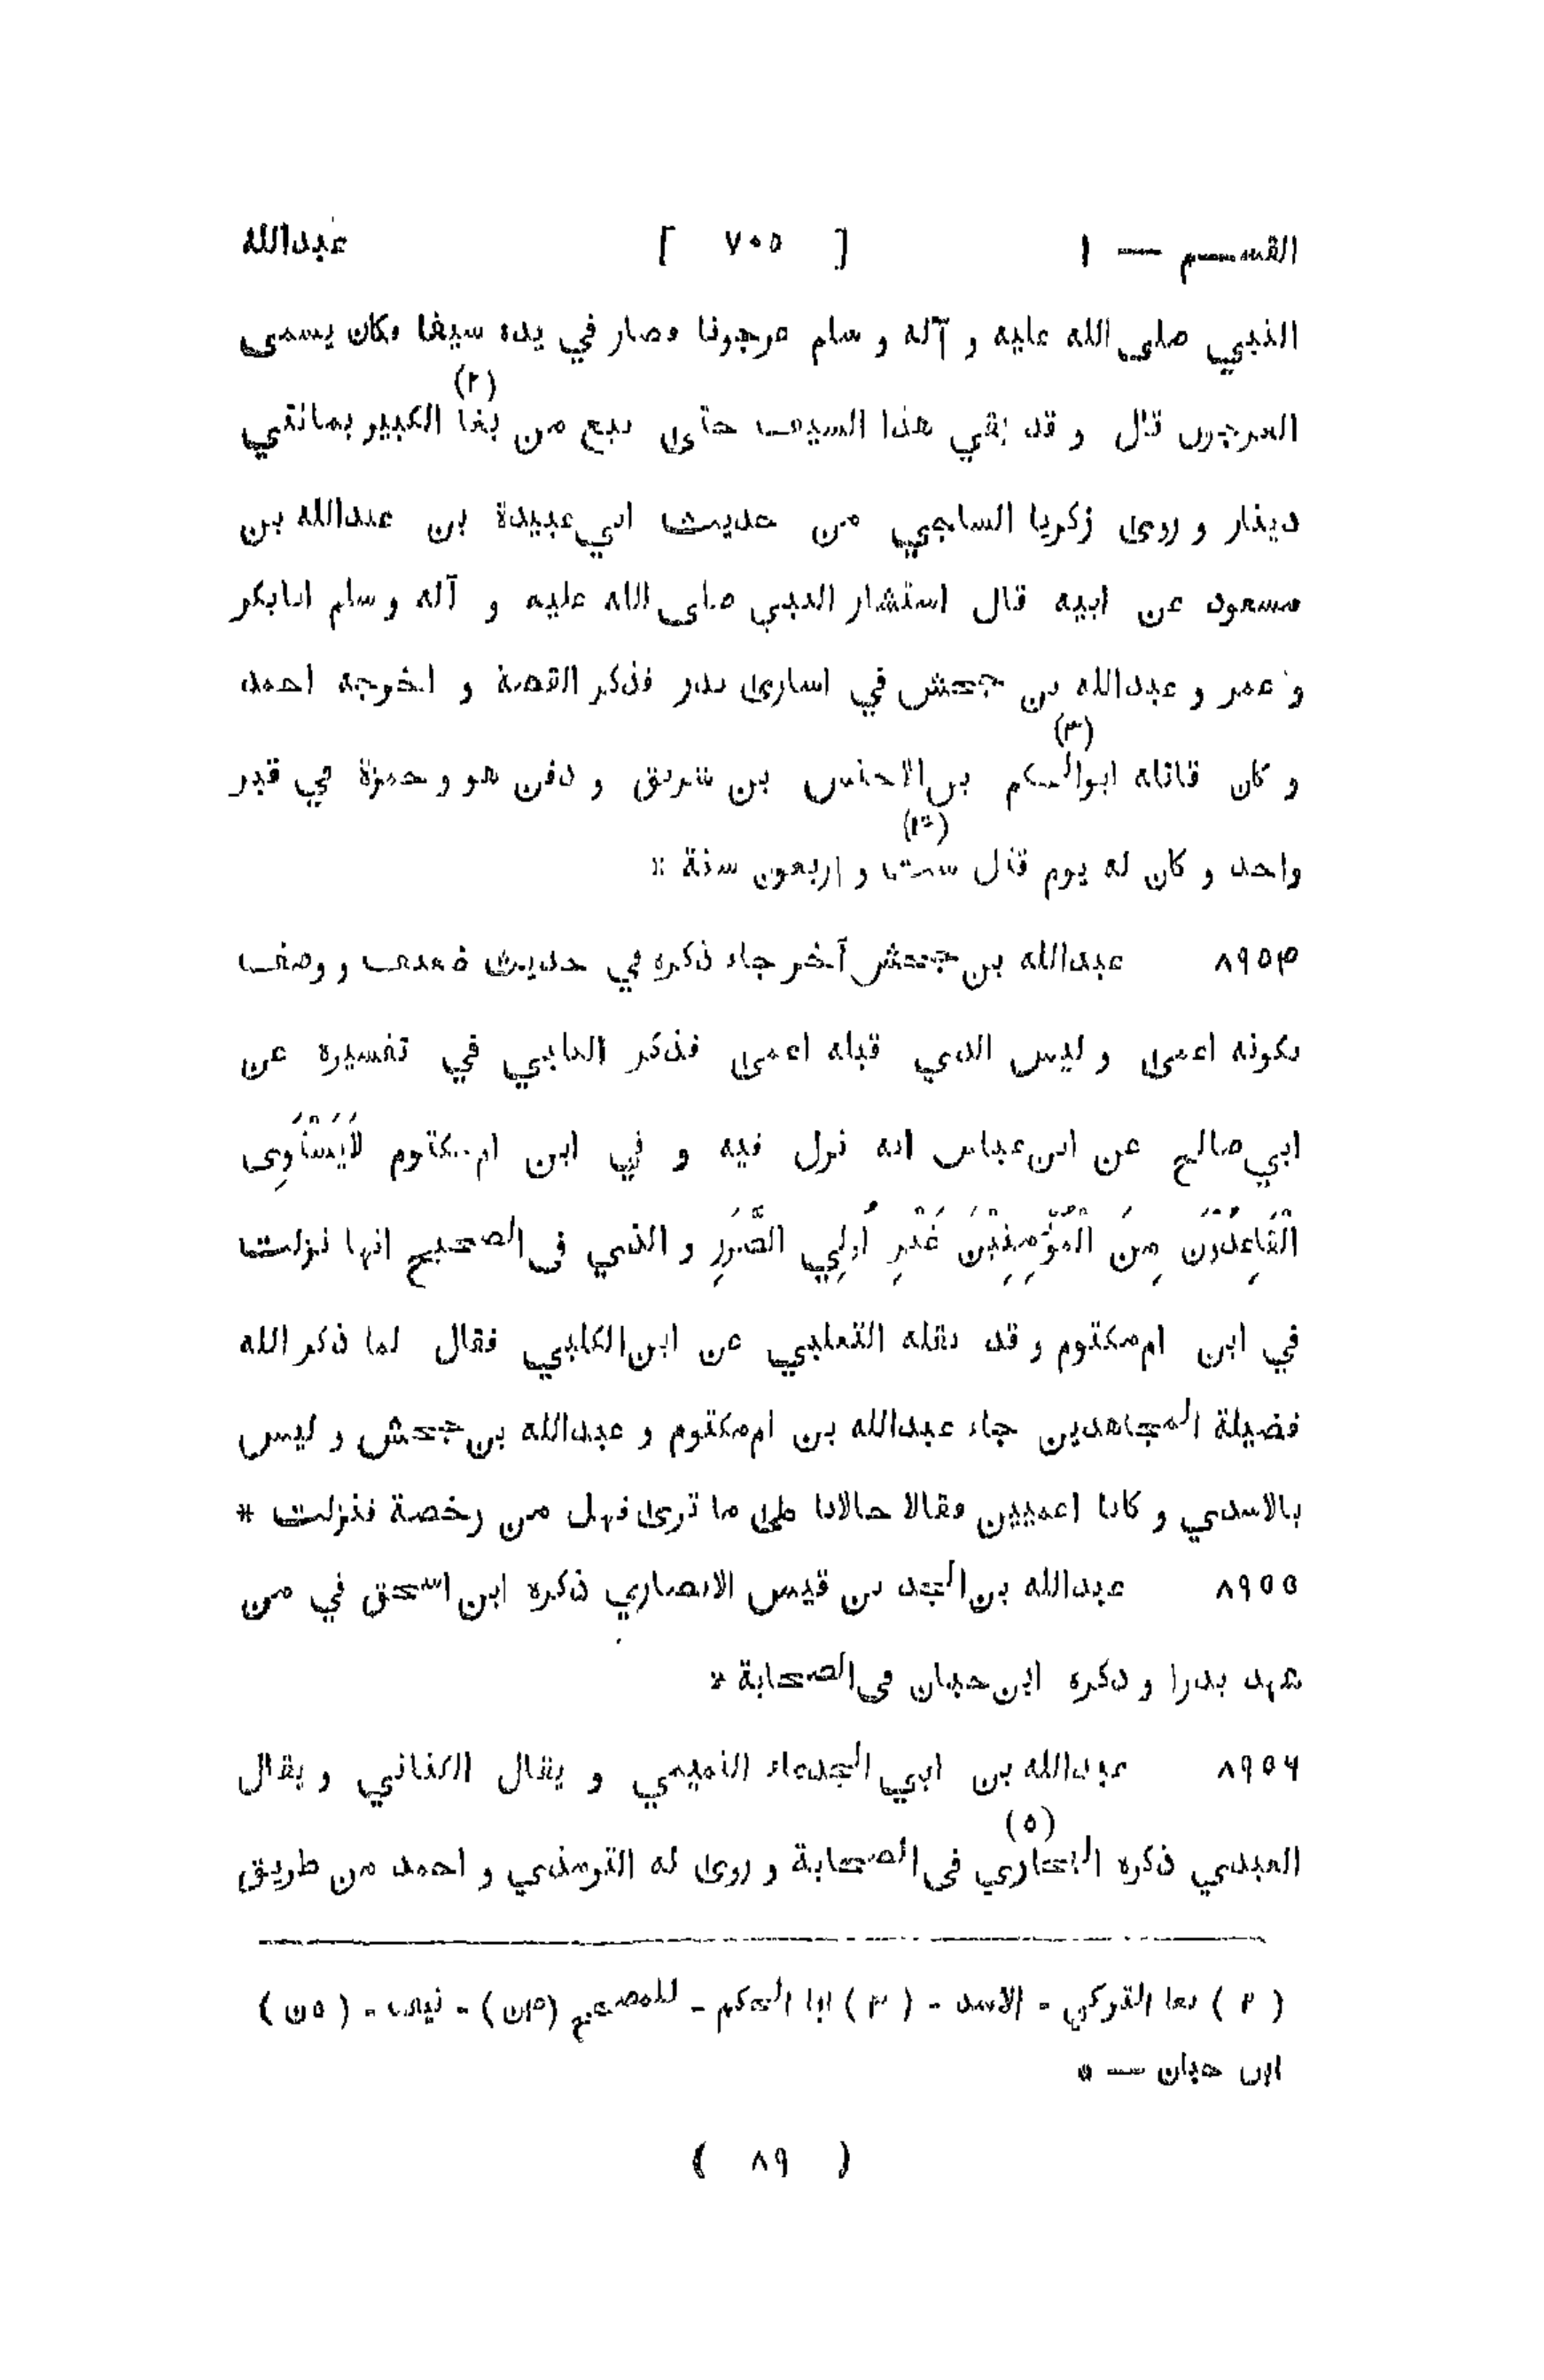 القسم — ١ [ ٧٠٥ ] عبدالله
النبي صلى الله عليه و آله و سلم عرجونا فصار في يده سيفا فكان يسمى
العرجون قال و قد بقي هذا السيف حتى بيع من بغا (٢) الكبير بمائتي
دينار و روى زكريا الساجي من حديث ابي عبيدة بن عبدالله بن
مسعود عن ابيه قال استشار النبي صلى الله عليه و آله و سلم ابابكر
و عمر و عبدالله بن جحش في اسارى بدر فذكر القصة و اخرجه احمد
و كان قاتله ابوالحكم (٣) بن الاخنس بن شريق و دفن هو و حمزة في قبر
واحد و كان له يوم قتل ست (۴) و اربعون سنة *
٨٩٥۴ عبدالله بن جحش آخر جاء ذكره في حديث ضعيف و وصف
بكونه اعمى و ليس الذي قبله اعمى فذكر الكلبي في تفسيره عن
ابي صالح عن ابن عباس انه نزل فيه و في ابن ام مكتوم لَايَسْتَوِى
الْقَاعِدُوْنَ مِنَ الْمُؤْمِنِيْنَ غَيْرِ اُولِي الضَّرَرِ و الذي فى الصحيح انها نزلت
في ابن ام مكتوم و قد نقله الثعلبي عن ابن الكلبي فقال لما ذكر الله
فضيلة المجاهدين جاء عبدالله بن ام مكتوم و عبدالله بن جحش و ليس
بالاسدي و كانا اعميين فقالا حالانا على ما ترى فهل من رخصة فنزلت *
٨٩٥٥ عبدالله بن الجد بن قيس الانصاري ذكره ابن اسحق في من
شهد بدرا و ذكره ابن حبان فى الصحابة *
٨٩٥٦ عبدالله بن ابي الجدعاء التميمي و يقال الكناني و يقال
العبدي ذكره البخاري (٥) فى الصحابة و روى له الترمذي و احمد من طريق
( ٢ ) بغا التركي - الاسد - ( ٣ ) ابا الحكم - للمصحح (۴ن) - نيف - ( ٥ن )
ابن حبان — *
( ٨٩ )